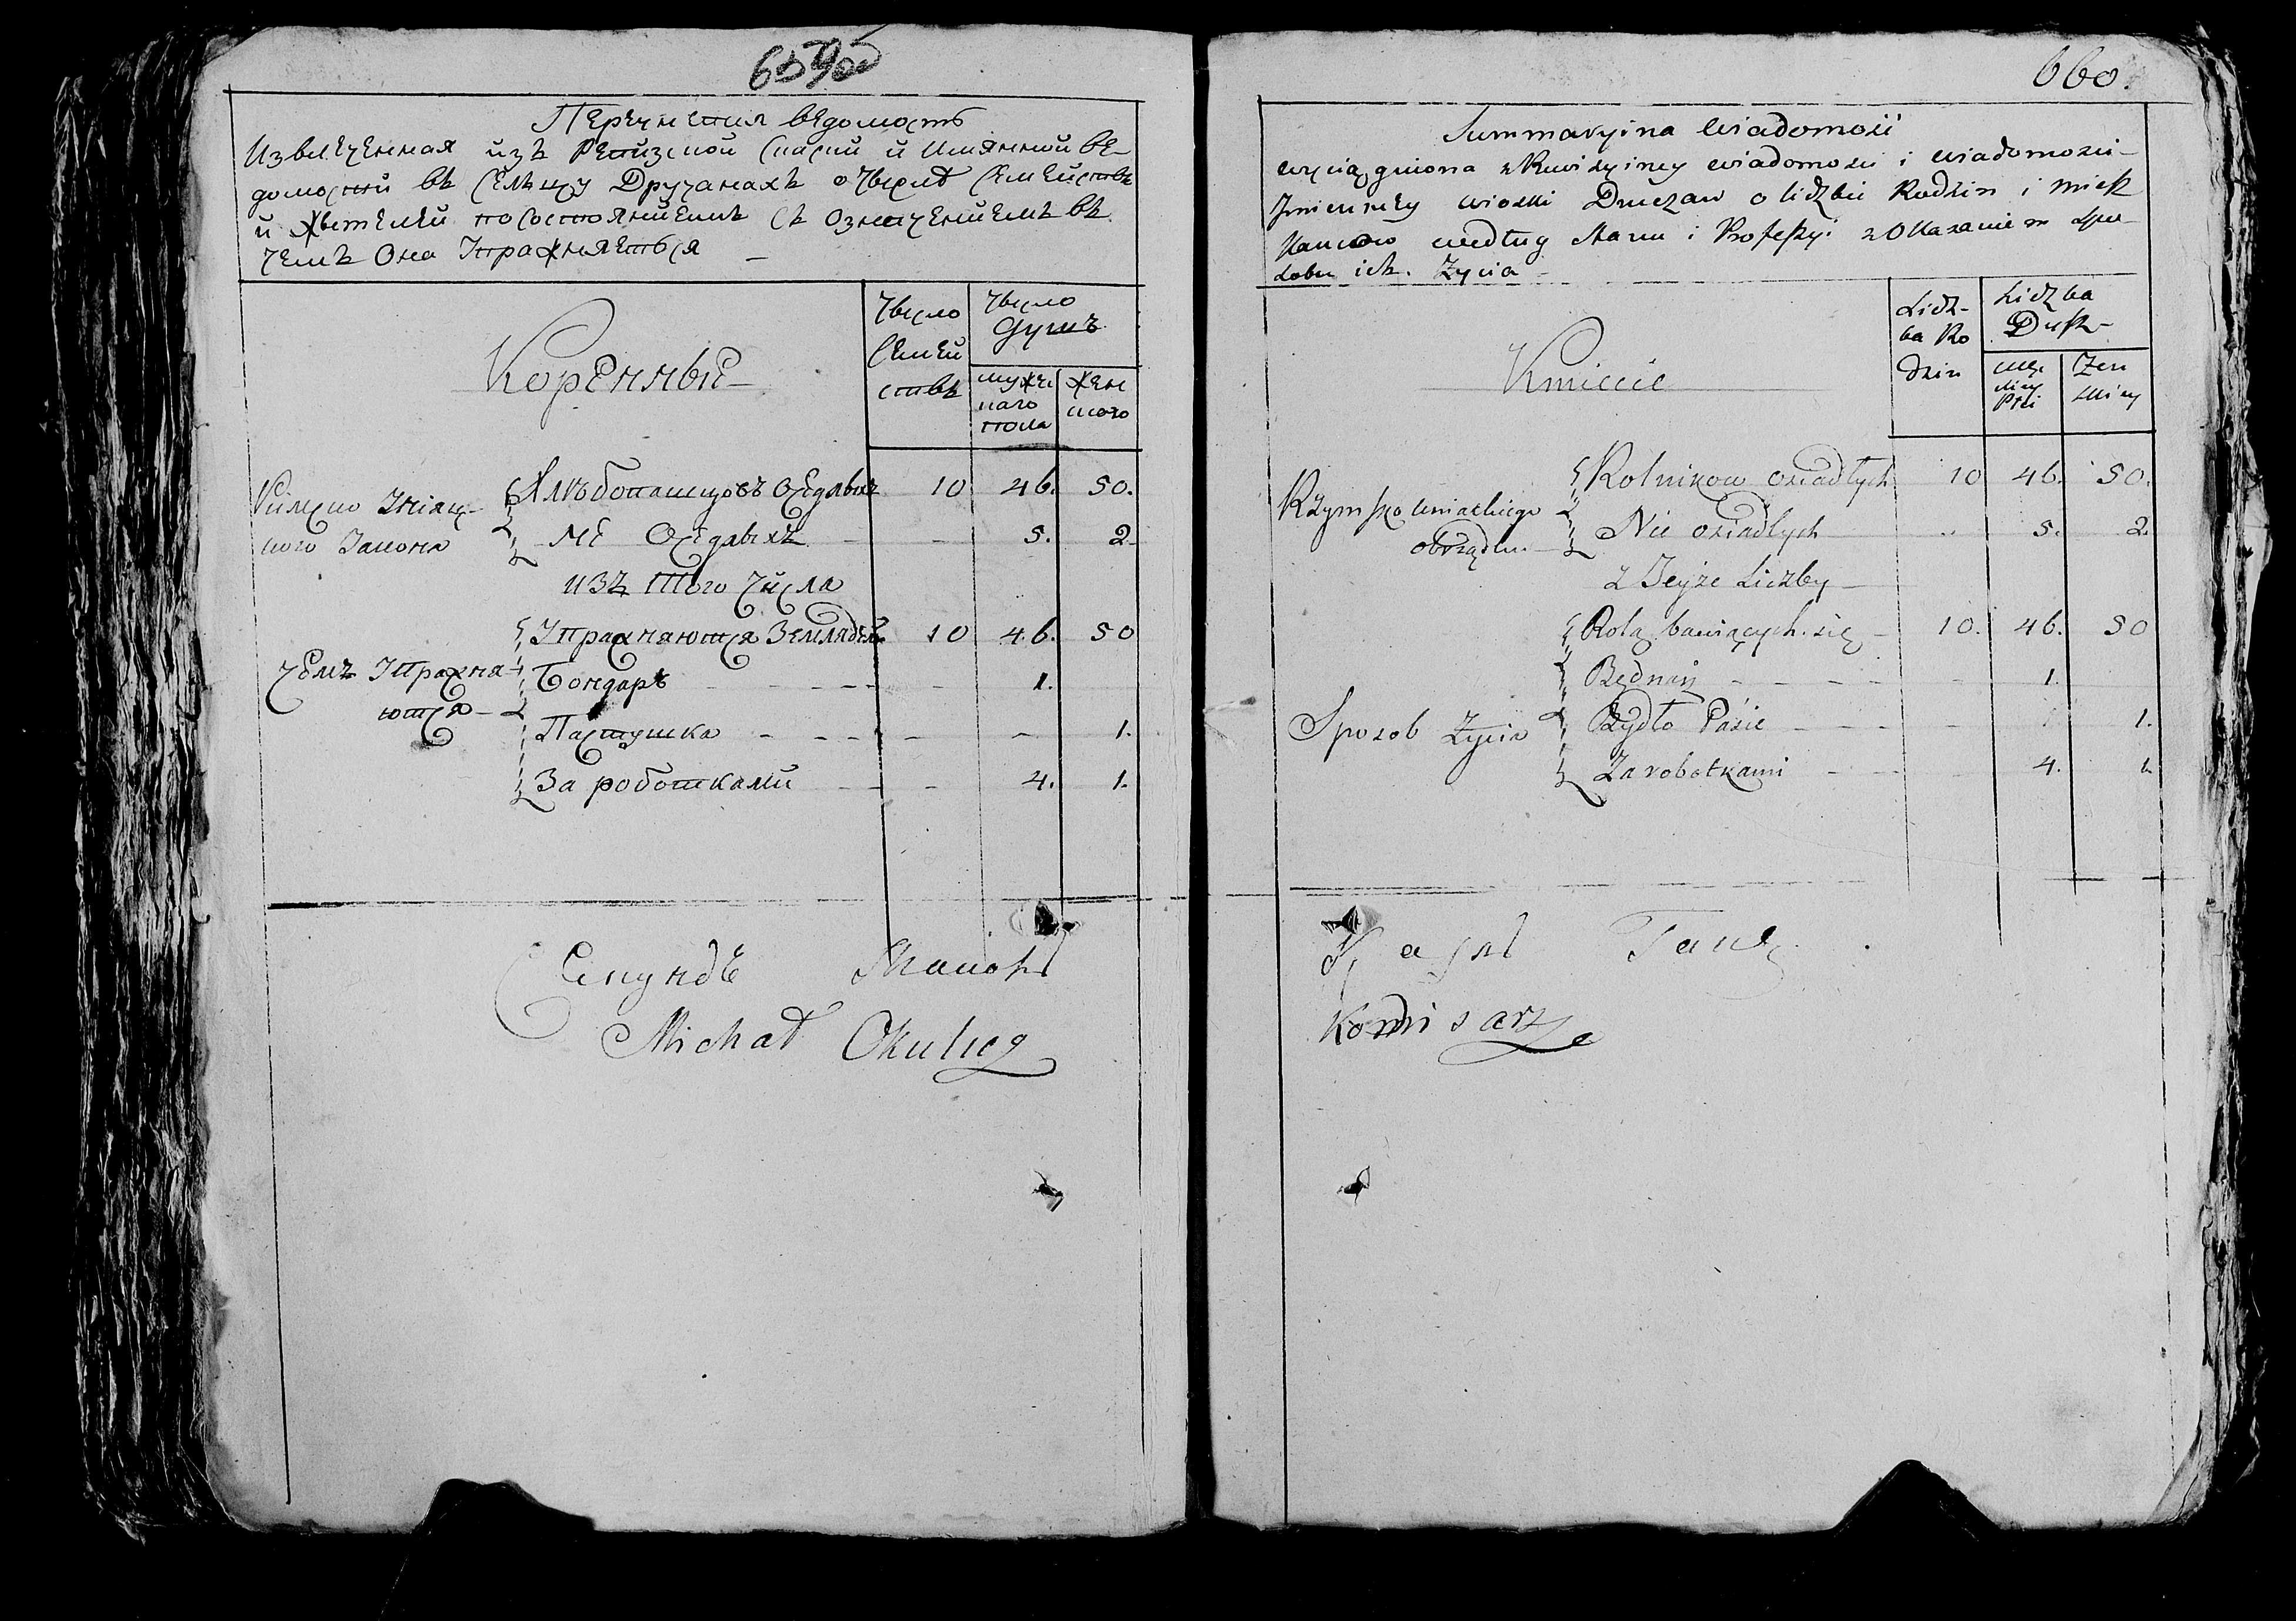 Перечнетил ведомость
Извлеченная изъ Ревизской скаски и Имянной ве-
домости въ сельцу Дручанахъ о числѣ семействъ
и жителей по состоянiемъ съ означенiемъ въ
чемъ Она Упражняеться
Коренные
Число
семей
ствъ
Число
душъ
мужес
каго
пола
жен
скаго
Римско Унiяц-
кого Закона
Хлѣбопашцовъ осѣдлыхъ 10 46. 50.
не осѣдлыхъ 5. 2
изъ того числа
Чемъ Упражня-
ются
Упражняются Земляделi 10 46. 50
Бондаръ 1.
Пастушка 1.
За роботками 4. 1.
Michał Okulicz
660.
Summaryina Wiadomość
wyciągniona z Rewizyiney wiadomosci i wiadomosci
Jmienney wioski Druczan o lidzbie Rodzin i miesz
kancow według stanu i Professyi z Okazaniem spo-
sobu ich. Zycia
Kmiecie
Lidz-
ba Ro
dzin
Lidzba
Dusz
męz
kiey
Płci
Zen
skiey
Rzymsko Uniackiego
obrządku
Rolnikow osiadłych 10 46. 50.
Nie osiadłych 5. 2.
z Teyze Liczby
Sposob Zycia
Rolą bawiących się 10. 46. 50
Będnarz 1.
Bydło Pasie 1.
Zarobotkami 4. 1.
Komisarz